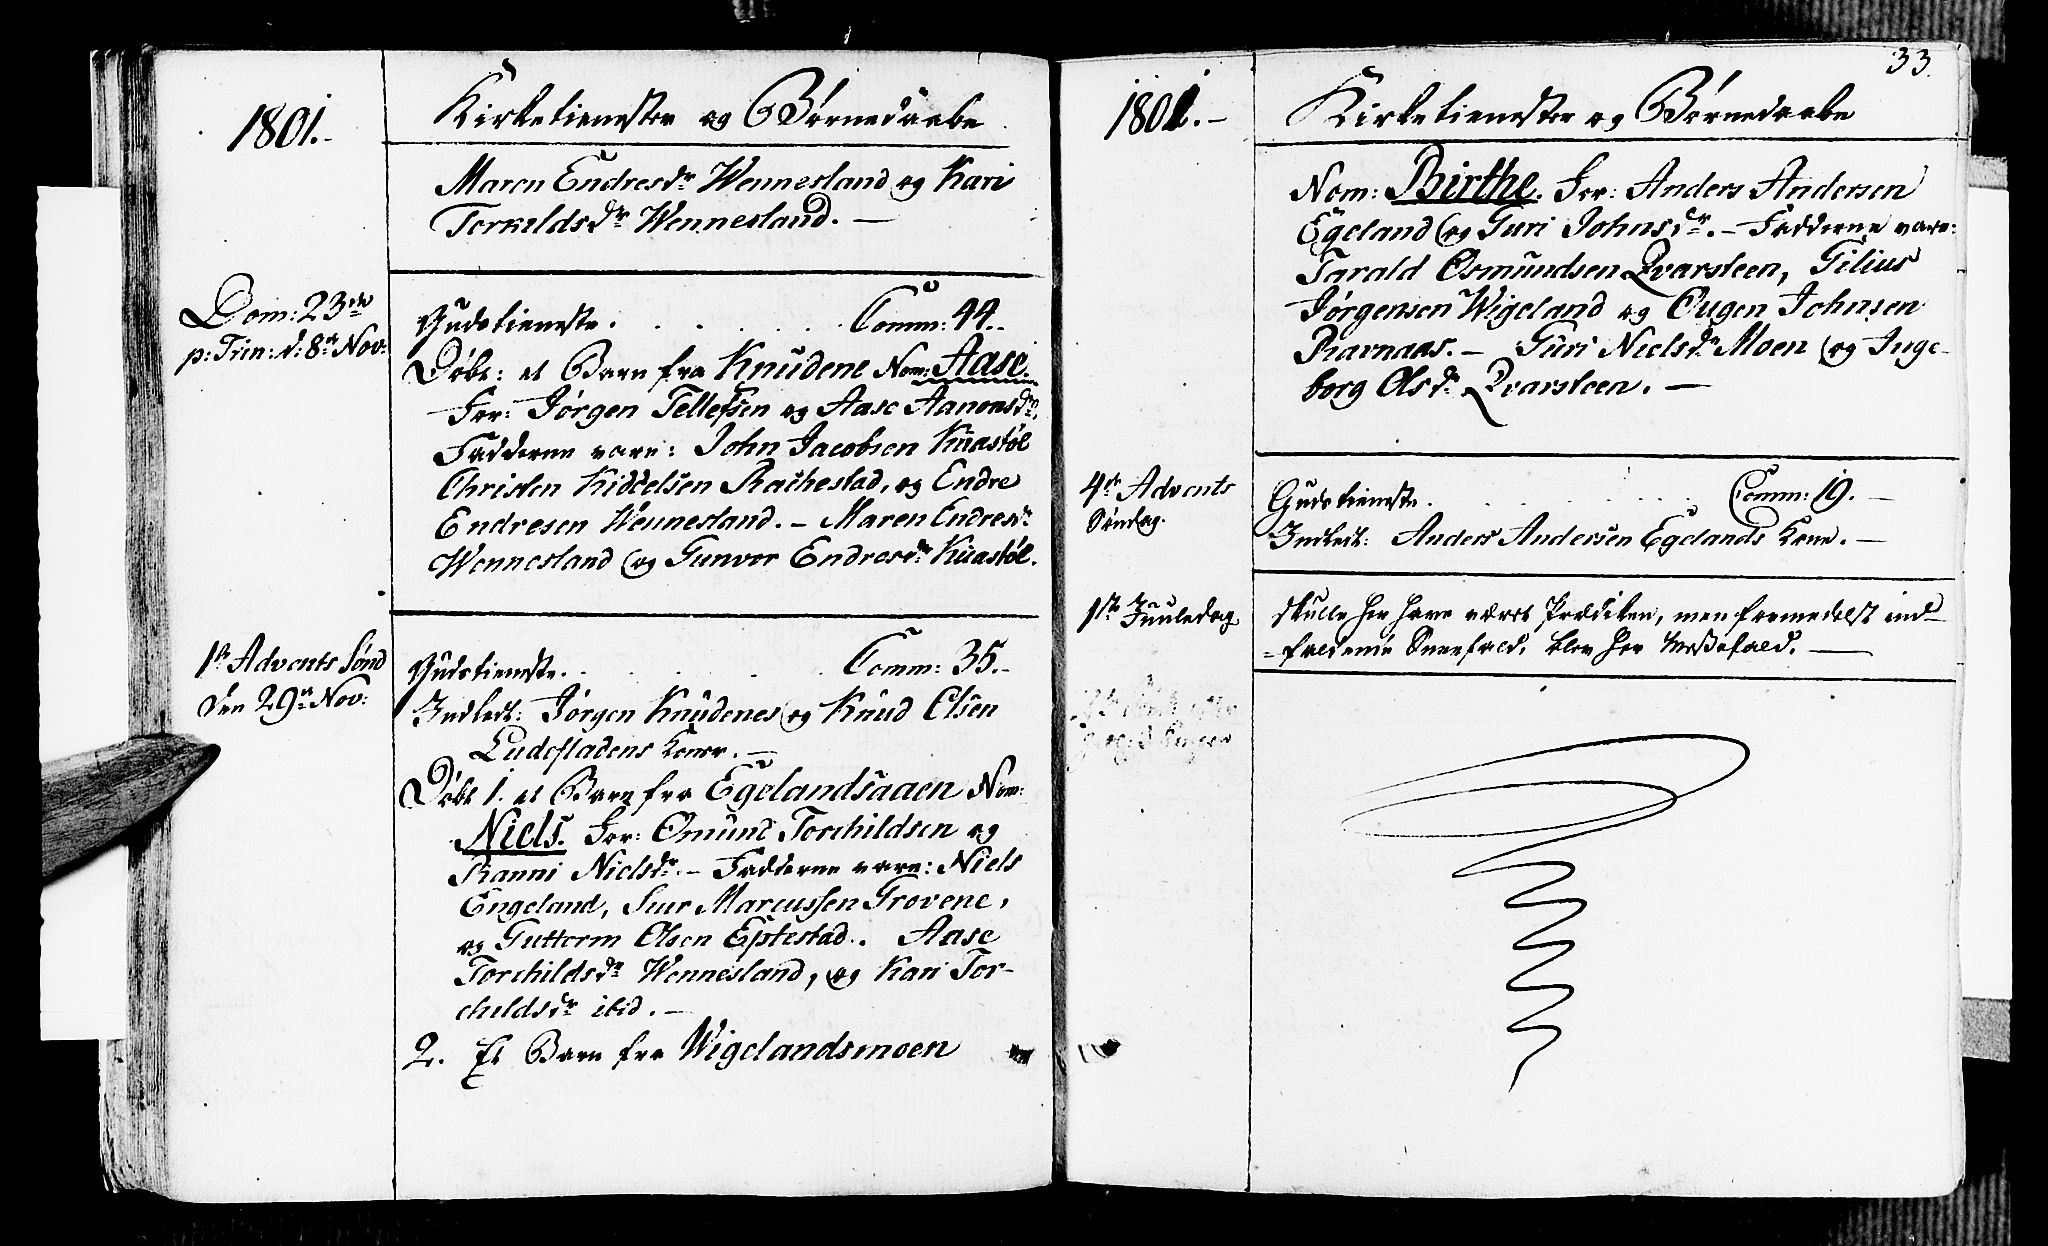 1801.-
Kirketienester og Børnedaabe
Maren Endresdr Wennesland og Kari
Torkildsdr Wennesland. —
Dom: 23de
p: Trin: d: 8n Nov:
Gudstieneste. . . . . . . Comm: 44..
Døbt: et Barn fra Knudene Nom: Aase.
For: Jørgen Tellefsen og Aase Aanonsdr.
Fadderne vare: John Jacobsen Kuastøl
Christen Kiddelsen Raehestad, og Endre
Endresen Wennesland. – Maren Endresdr
Wennesland og Gunvor Endresdr Kuastøl.
1ste Advents Sønd
den 29n Nov:
Gudstieneste. . . . . . . Comm: 35.-
Indledt: Jørgen Knudenes og Knud Olsen
Ludefladens Koner. —
Døbt 1. et Barn fra Egelandsaaen Nom:
Niels. For: Omund Torchildsen og
Ranni Nielsdr. – Fadderne vare: Niels
Engeland, Siur Marcussen Grovene,
og Guttorm Olsen Eptestad. Aase
Torchildsdr Wennesland, og Kari Tor-
childsdr ibid. —
2. Et Barn fra Wigelandsmoen
33.
1801.-
Kirketienester og Børnedaabe
Nom: Birthe. For: Anders Andersen
Egeland og Guri Johnsdr. – Fadderne vare:
Tarald Osmundsen Qvarsteen, Gilius
Jørgensen Wigeland og Ougen Johnsen
Ravnaas. – Guri Nielsdr Moen og Inge-
borg Olsdr Qvarsteen. —
4de Advents
Søndag.
Gudstieneste. . . . . . . Comm: 19. —
Indledt: Anders Andersen Egelands Kone. —
1ste Juuledag
skulle her have været Prædiken, men formedelst ind-
=faldende Sneefald, blev her Messefald. —